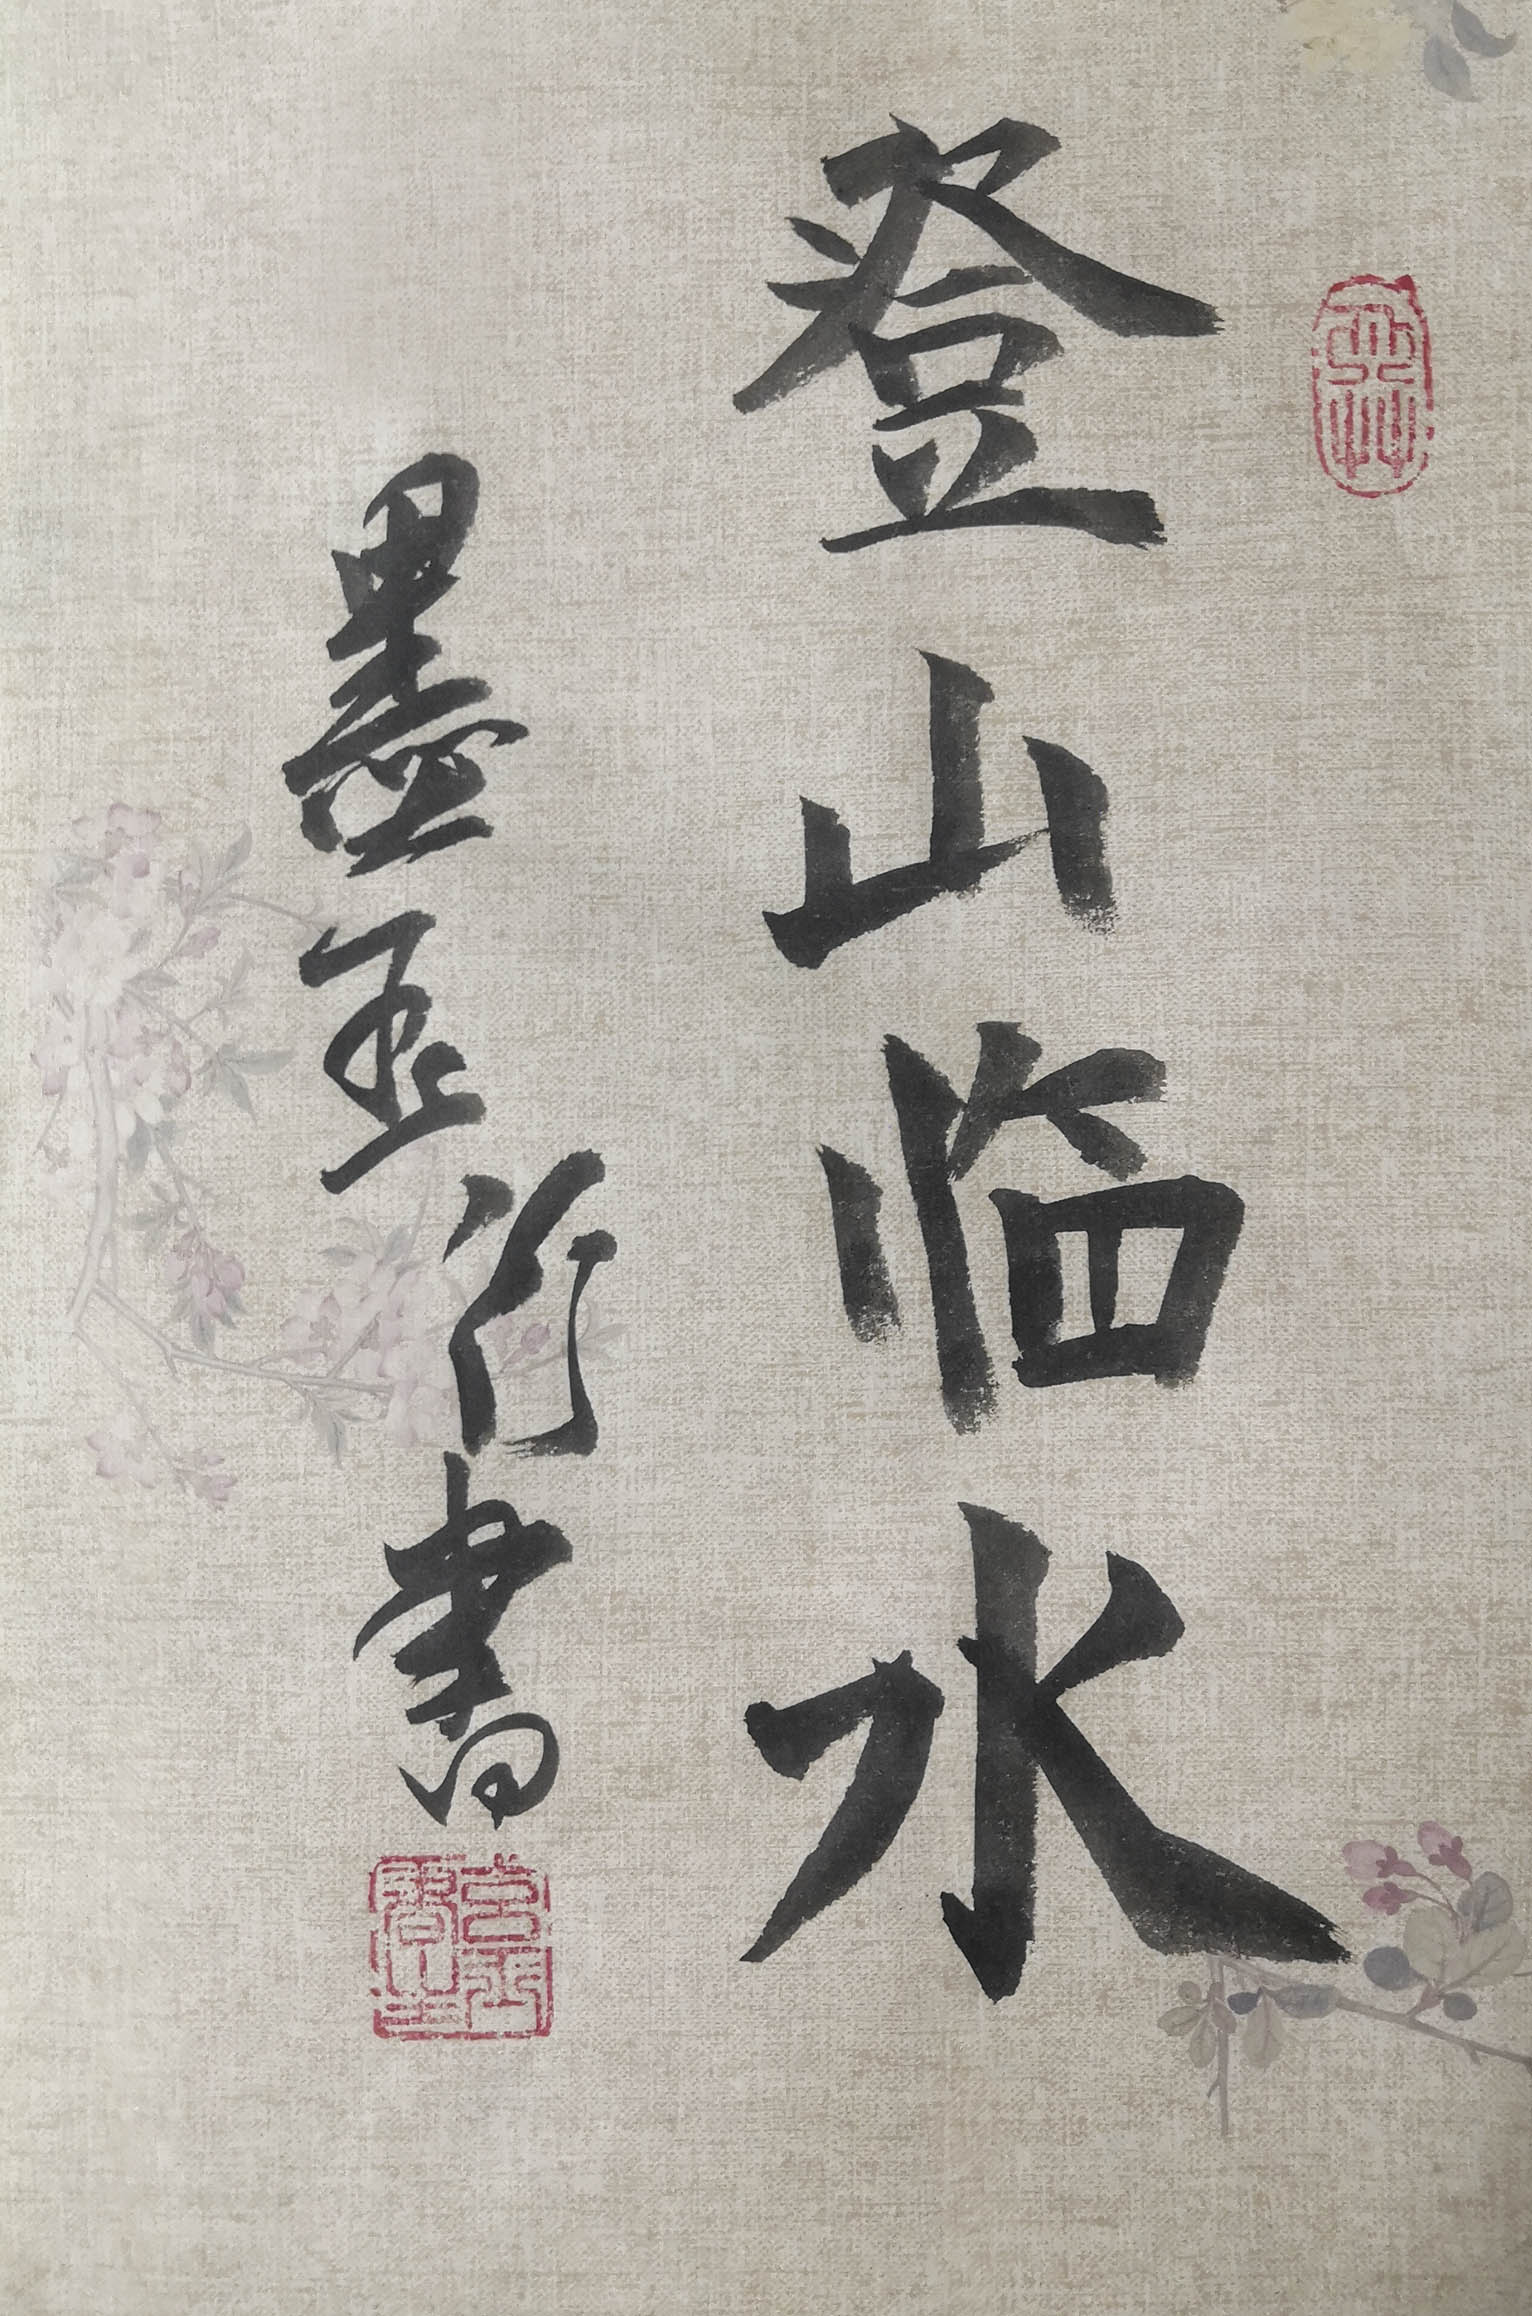 登山临水
墨玉行書